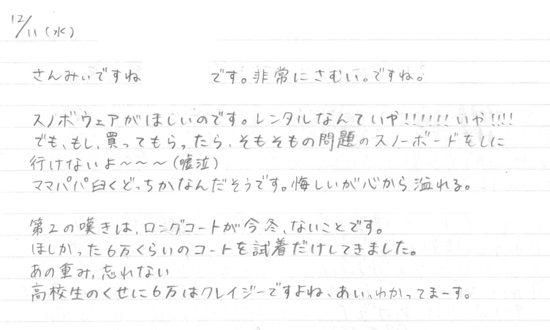 12/11(水)
さんみぃですね です。非常にさむい。ですね。
スノボウェアがほしいのです。レンタルなんていや!!!!!!いや!!!!
でも、もし、買ってもらったら、そもそもの問題のスノーボードをしに
行けないよ〜〜〜(嘘泣)
ママパパ曰くどっちかなんだそうです。悔しいが心から溢れる。
第2の嘆きは、ロングコートが今冬、ないことです。
ほしかった6万くらいのコートを試着だけしてきました。
あの重み、忘れない
高校生のくせに6万はクレイジーですよね、あいっわかってまーす。